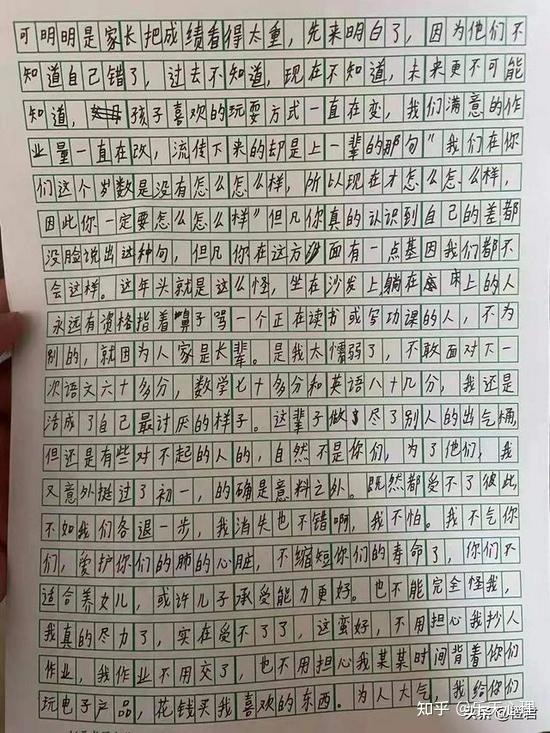 可明明是家长把成绩看得太重，先来明白了，因为他们不
知道自己错了，过去不知道，现在不知道，未来更不可能
知道，孩子喜欢的玩耍方式一直在变，我们满意的作
业量一直在改，流传下来的却是上一辈的那句"我们在你
们这个岁数是没有怎么怎么样，所以现在才怎么怎么样，
因此你一定要怎么怎么样"但凡你真的认识到自己的差都
没脸说出这种句，但凡你在这方面有一点基因我们都不
会这样。这年头就是这么怪，坐在沙发上躺在床上的人
永远有资格指着鼻子骂一个正在读书或写功课的人，不为
别的，就因为人家是长辈。是我太懦弱了，不敢面对下一
次语文六十多分，数学七十多分和英语八十几分，我还是
活成了自己最讨厌的样子。这辈子做尽了别人的出气桶，
但还是有些对不起的人的，自然不是你们，为了他们，我
又意外挺过了初一，的确是意料之外。既然都受不了彼此，
不如我们各退一步，我消失也不错啊，我不怕。我不气你
们，爱护你们的肺的心脏，不缩短你们的寿命了，你们不
适合养女儿，或许儿子承受能力更好。也不能完全怪我，
我真的尽力了，实在受不了了，这蛮好，不用担心我抄人
作业，我作业不用交了，也不用担心我某某时间背着你们
玩电子产品，花钱买我喜欢的东西。为人大气，我给你们
知乎
头条